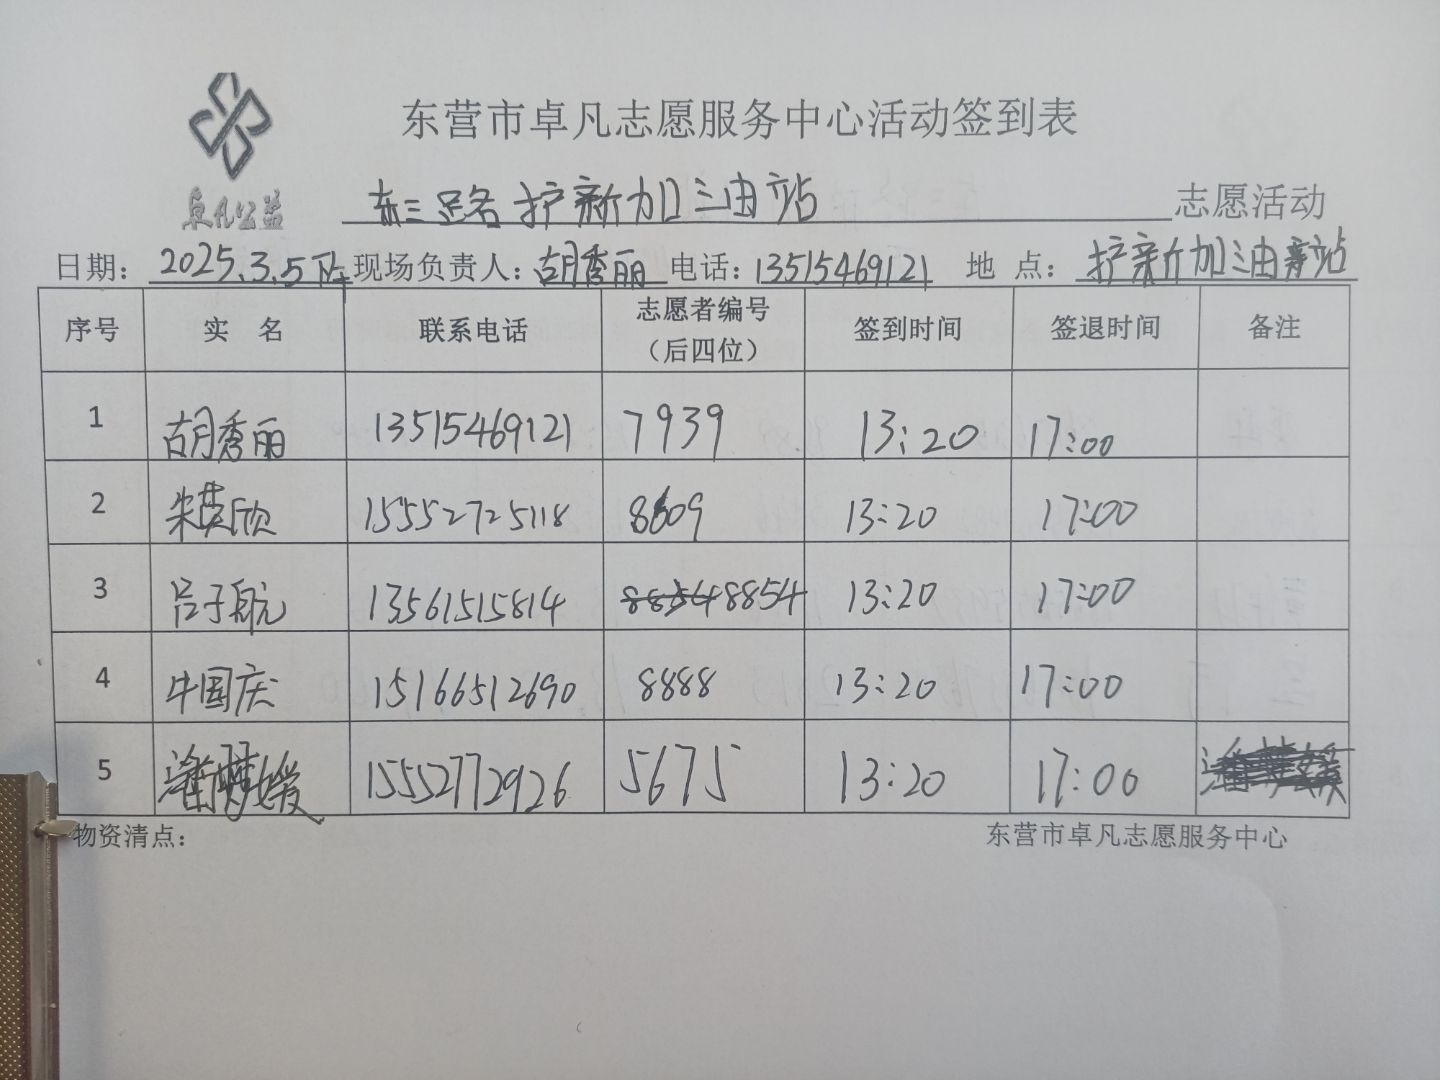 东营市卓凡志愿服务中心活动签到表
卓凡公益
东三路 护新加油站 志愿活动
日期： 2025.3.5下午 现场负责人： 胡秀丽 电话： 13515469121 地 点： 护新加油站
序号 实 名 联系电话 志愿者编号（后四位） 签到时间 签退时间 备注
1 胡秀丽 13515469121 7939 13:20 17:00
2 朱英欣 15552725118 8609 13:20 17:00
3 吕子航 13561515814 8854 13:20 17:00
4 牛国庆 15166512690 8888 13:20 17:00
5 潘梦媛 15552772926 5675 13:20 17:00
物资清点： 东营市卓凡志愿服务中心